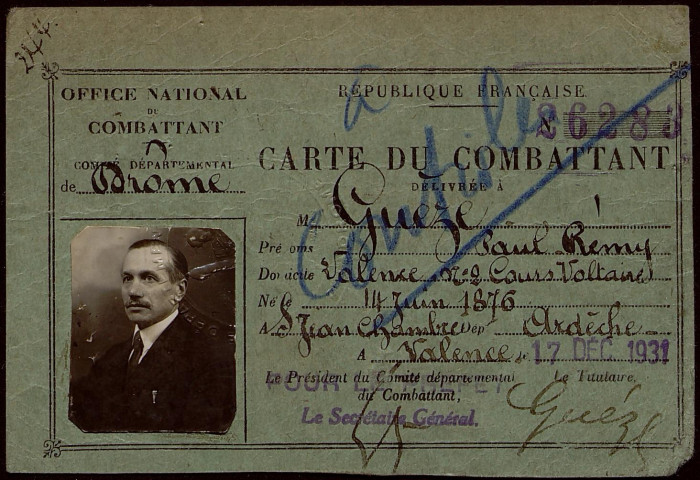 244
OFFICE NATIONAL
DU
COMBATTANT
COMITÉ DÉPARTEMENTAL
de Drôme
RÉPUBLIQUE FRANÇAISE
à
N° 26283
CARTE DU COMBATTANT
DÉLIVRÉE À
M Guèze
Prénoms Paul Rémy
Domicile Valence n°2 Cours Voltaire
Né le 14 Juin 1876
A St Jean Chambre Dép Ardèche
A Valence, le 17 DEC 1931
Le Président du Comité départemental
du Combattant,
Le Titulaire,
POUR LE
Le Secrétaire Général.
Guéze